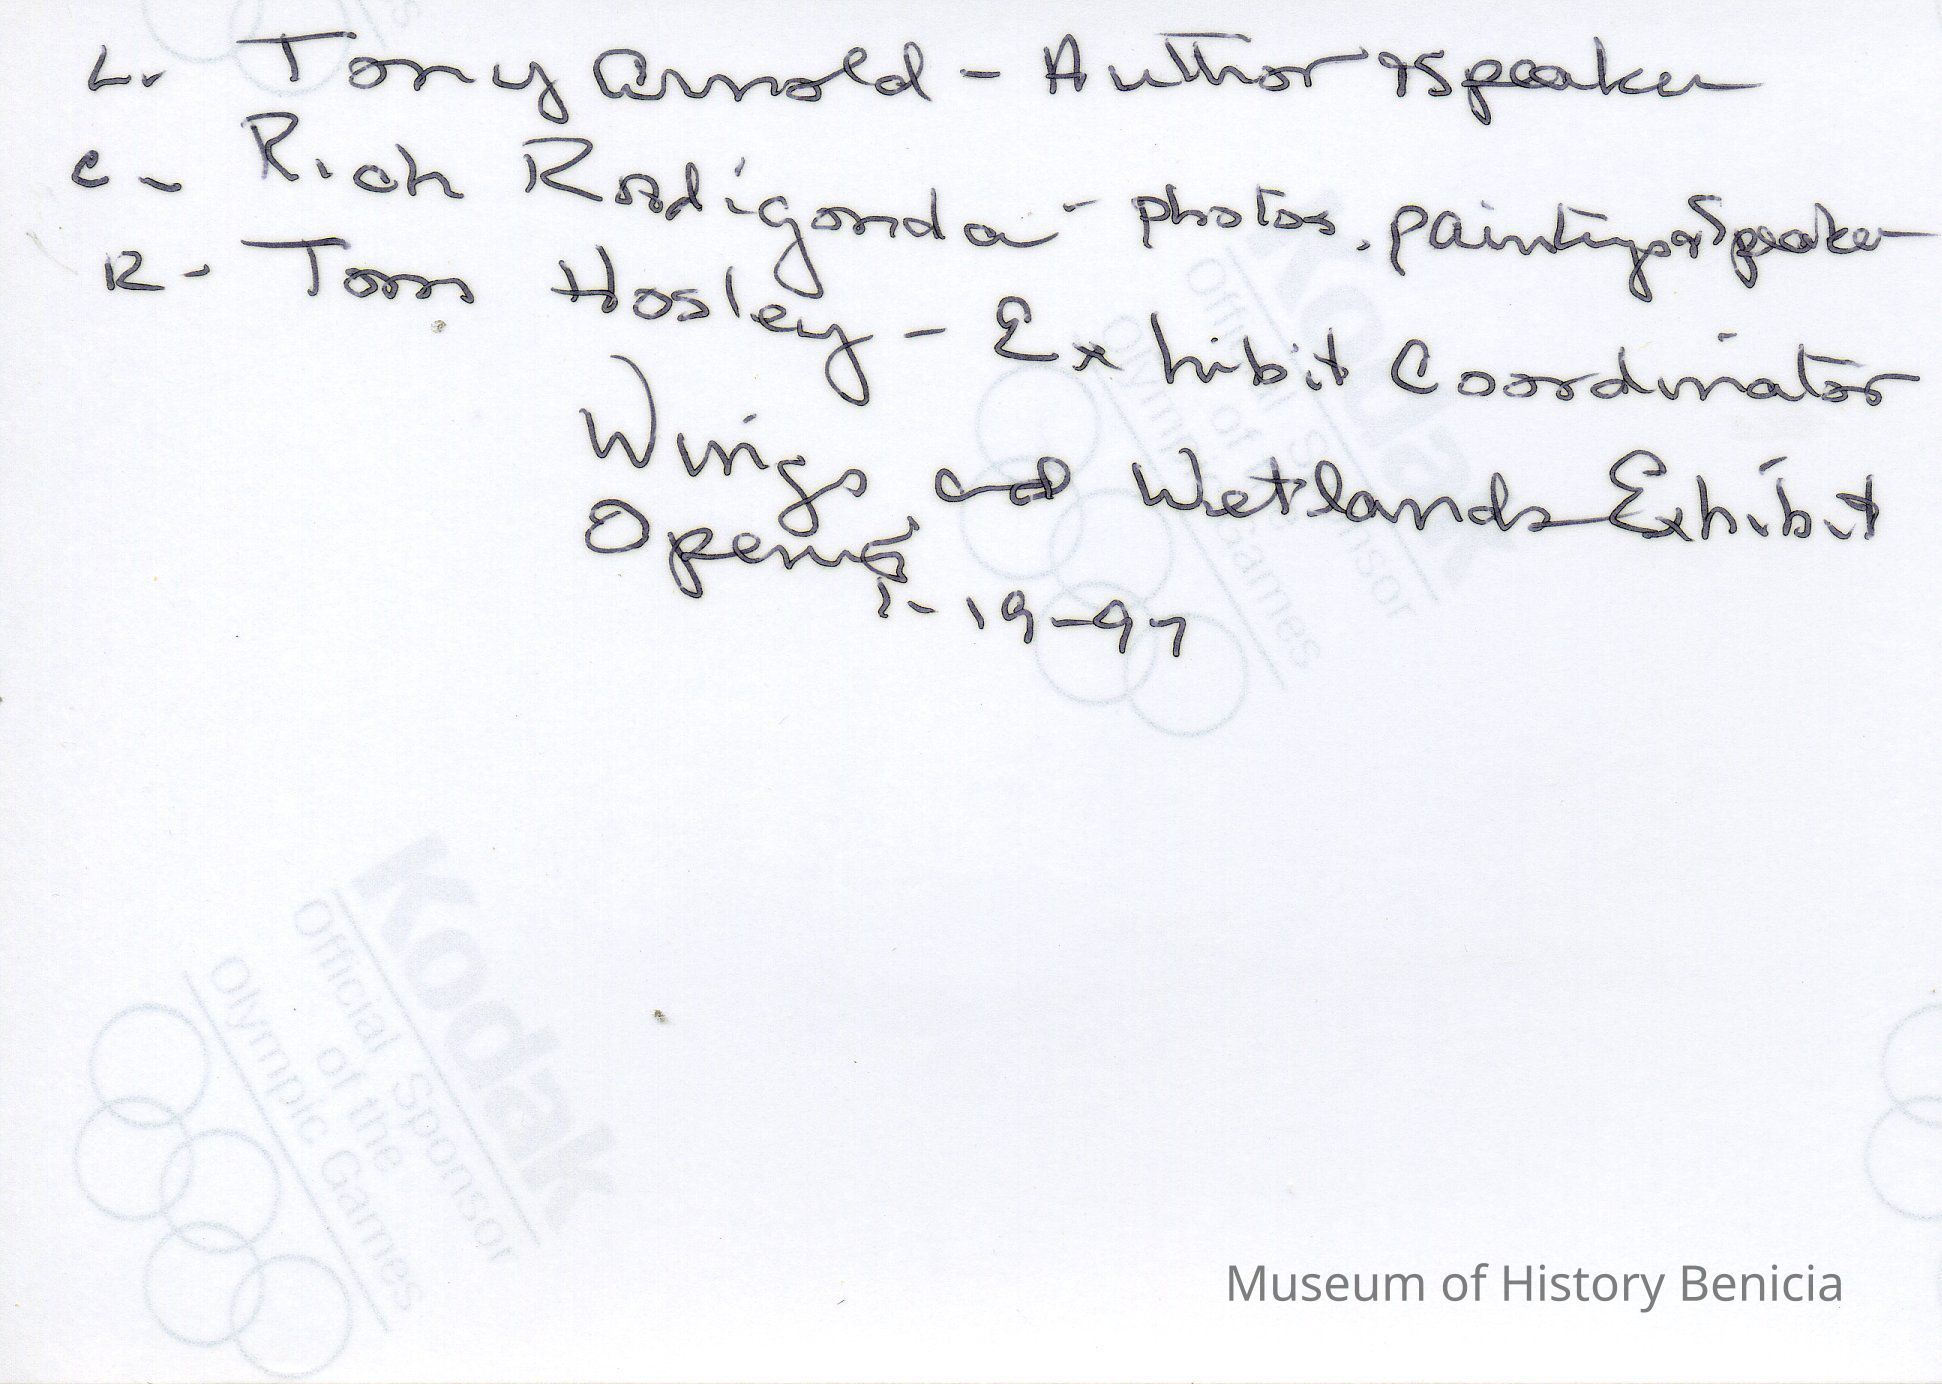 L. Tony Arnold - Author & Speaker
C - Rich Rodigonda - photos, paintings & Speaker
R - Tom Hosley - Exhibit Coordinator
Wings and Wetlands Exhibit
Opening
1-19-97
Kodak
Official Sponsor
of the
Olympic Games
Kodak
Official Sponsor
of the
Olympic Games
Museum of History Benicia